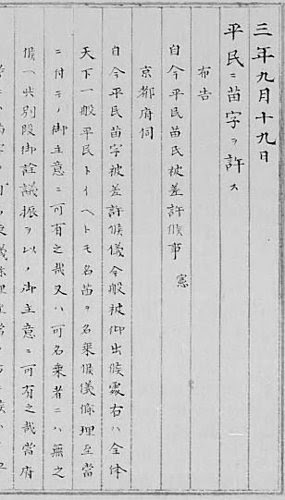 三年九月十九日
平民ニ苗字ヲ許ス
布告
自今平民苗氏被差許候事 憲
京都府伺
自今平民苗字被差許候儀今般被仰出候処右ハ全体
天下一般平民トイヘトモ名苗ヲ名乗候儀條理至当
ニ付テノ御主意ニ可有之哉又ハ可名乗者ニハ無之
候ヘ共別段御詮議振ヲ以ノ御主意ニ可有之哉当府